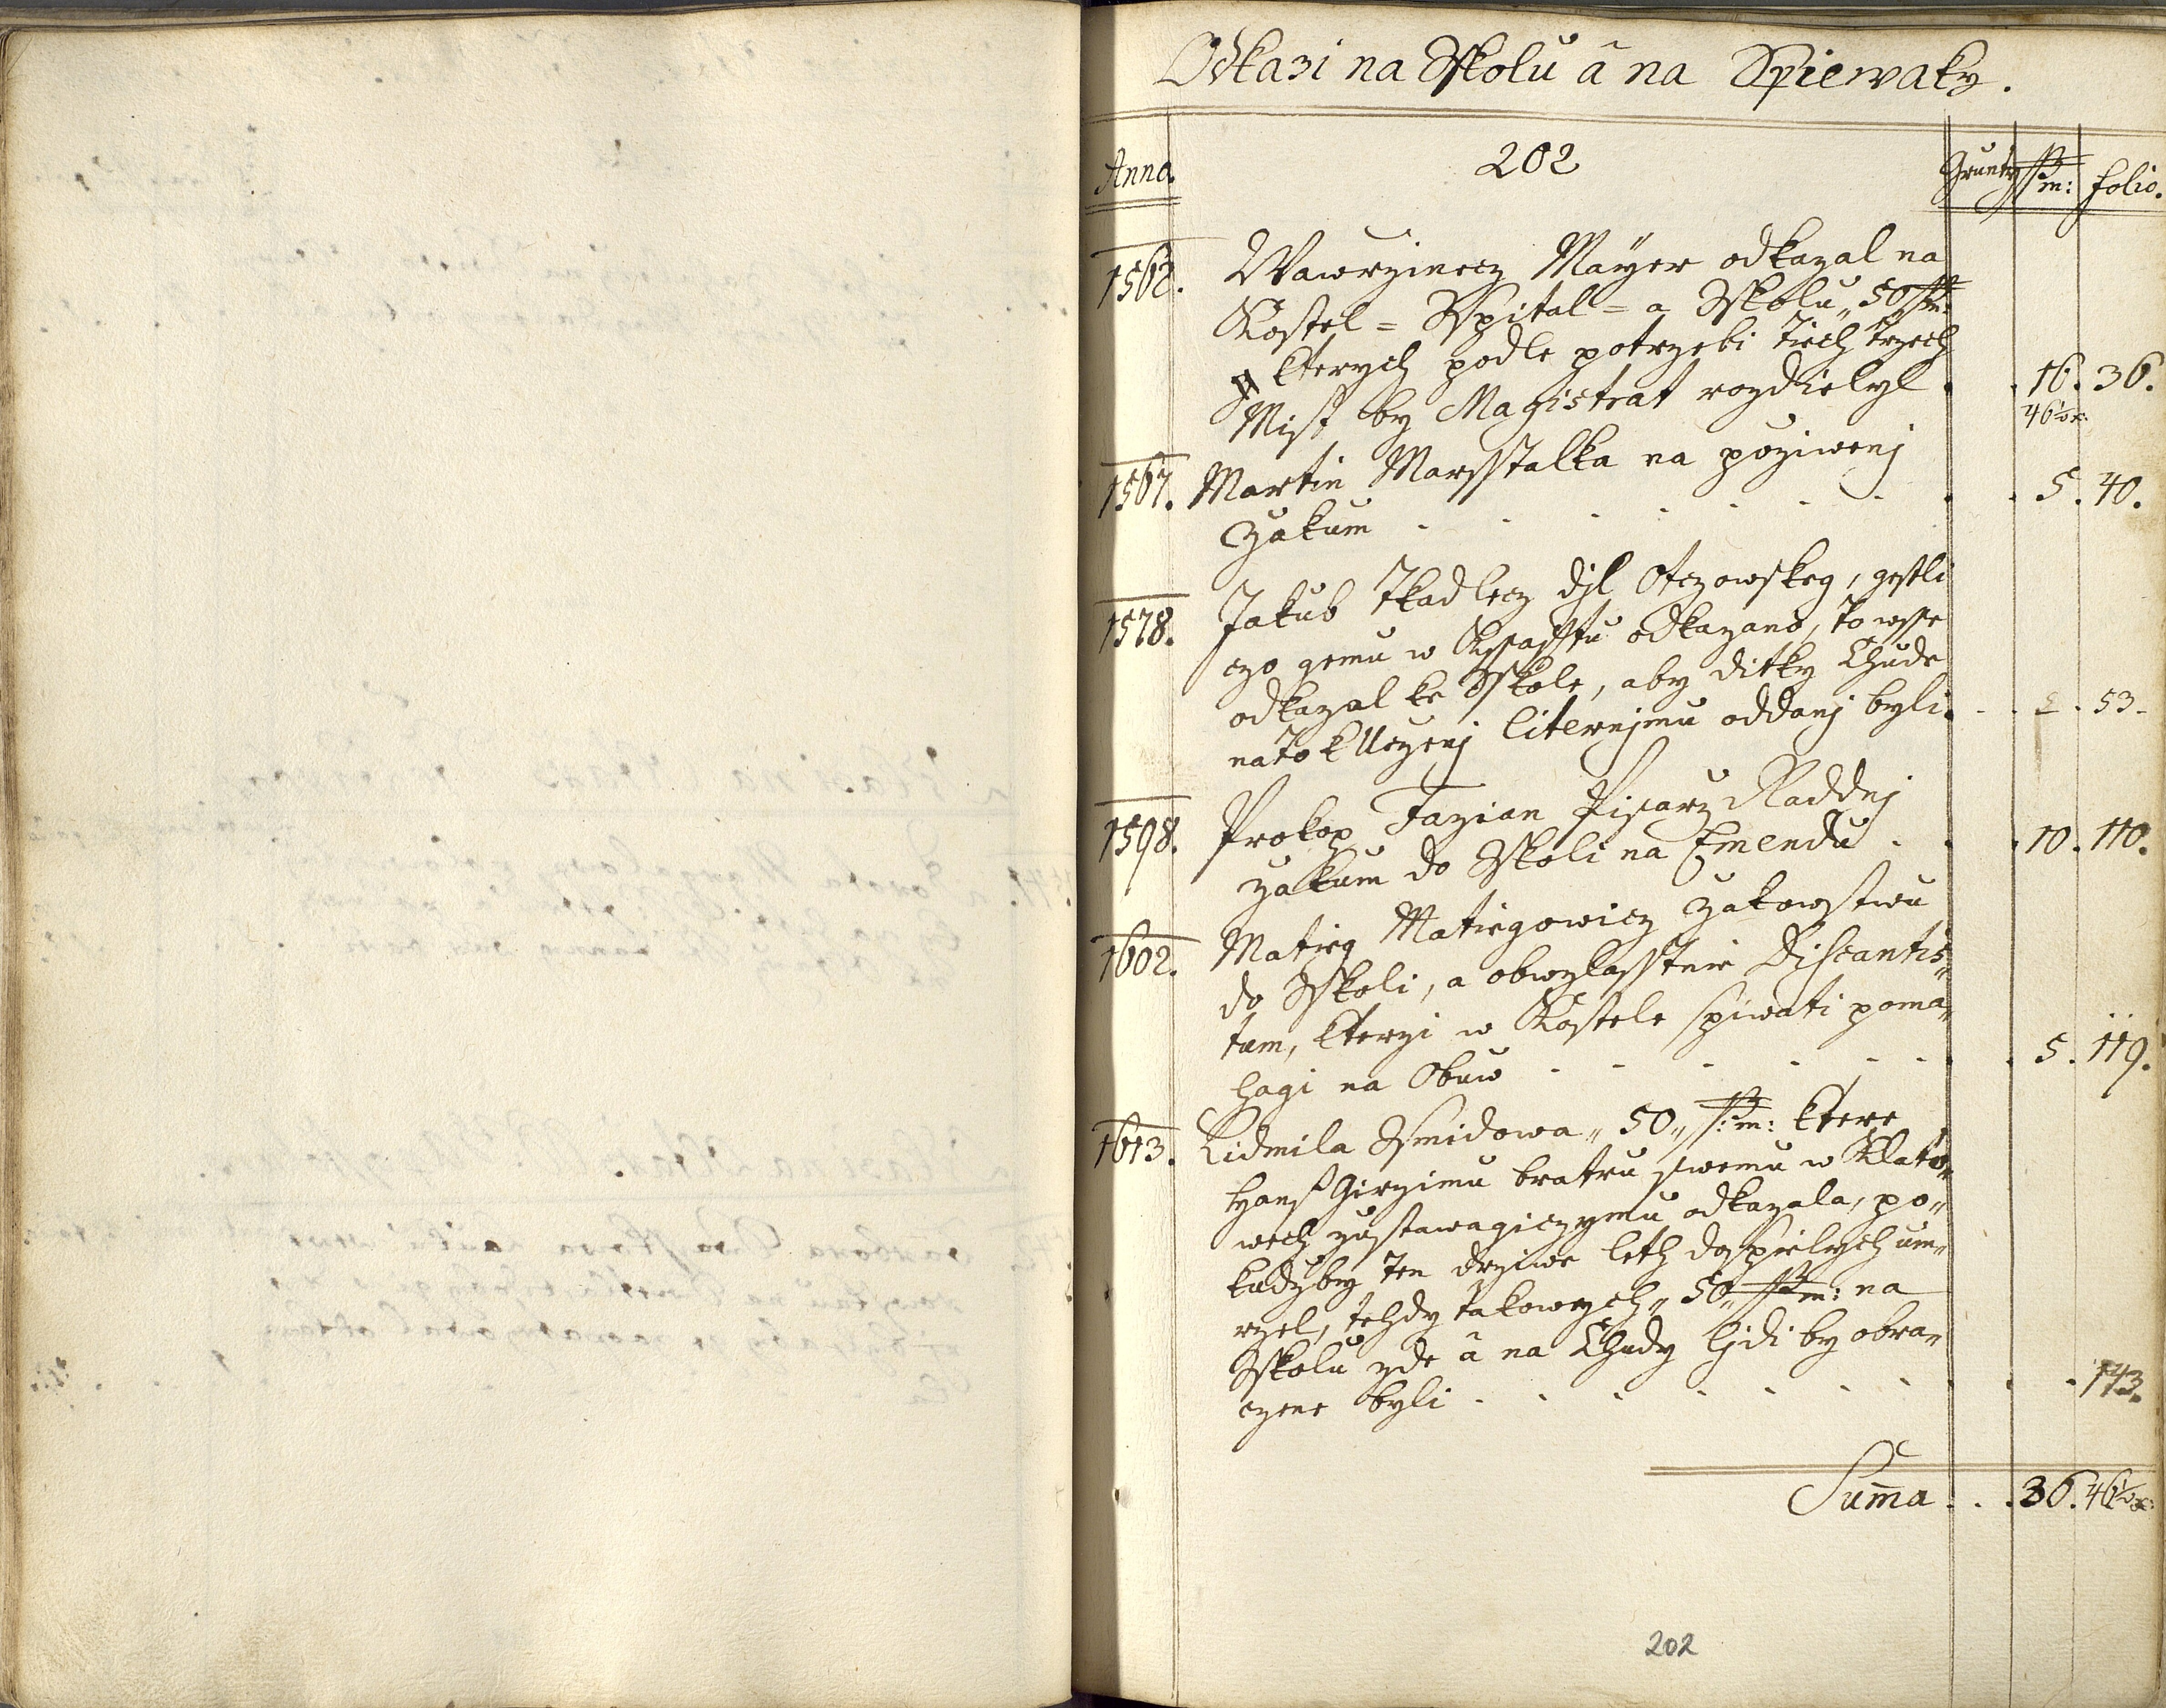 Odkazi na Sskolu â na Spiewaky.
Anno.
202
Grunty
ß: m:
folio.
1562. Wawrzinecz Mayer odkazal na
Kostel = Sspital = a Sskolu „ 50 „ ß m:
kterych podle potrzebi Tiech trzech
Mist by Magistrat rozdielyl . . 16. 36.
46½ x:
1567. Martin Marsstalka na poziwenj
Zakum . . . . . . . . 5. 40.
1578. Jakub Tkadlecz djl Otczowskeg, gestli
czo gemu w Kssafftu odkazano, to wsse
odkazal ke Sskole, aby ditky Chude
na to k Uczenj liternjmu oddanj byli. . . 53.
1598. Prokop Fazian Pisarz Raddnj
zakum do Sskoli na Emendu . . . 10. 110.
1602. Matieg Matiegowicz Zakowstwu
do Sskoli, a obwzlasstnie Discantis„
tum, kterzi w Kostele spiwati poma„
hagi na Obuw . . . . . . 5. 119.
1613. Lidmila Ssmidowa „ 50 „ ß: m: ktere
Hanß Girzimu bratru swemu w Klato„
wech zustawagiczymu odkazala, po„
kudzby ten drziwe leth dospielych um„
rzel, tehdy takowych „ 50 „ ß m: na
Sskolu zde â na Chudy ljdi by obra„
czene byli . . . . . . . . 143.
Suma . . . 36. 46½ x:
202